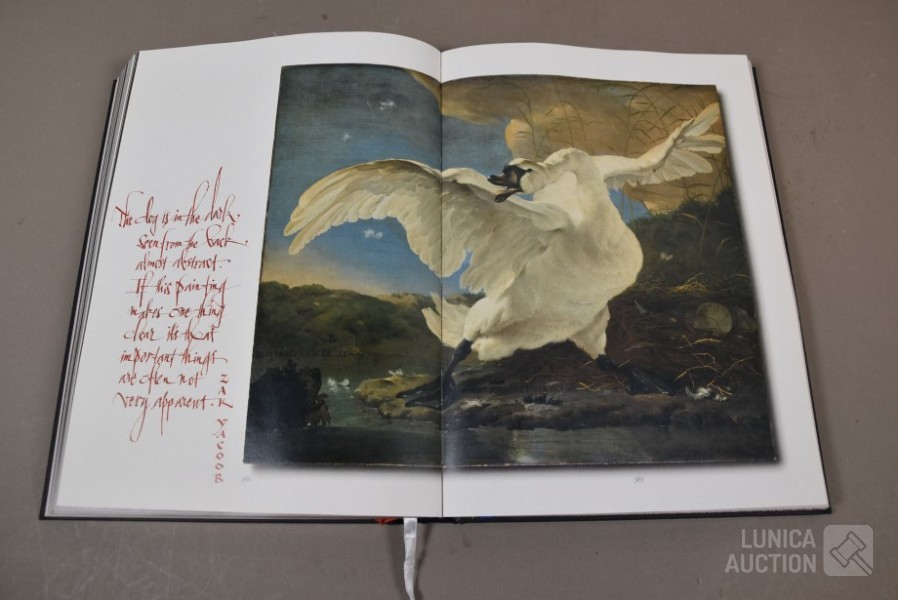 The dog is in the dark.
Seen from the back
almost abstract.
If this painting
makes one thing
clear it's that
important things
are often not
very apparent.
ZAK YACOOB
LUNICA
AUCTION